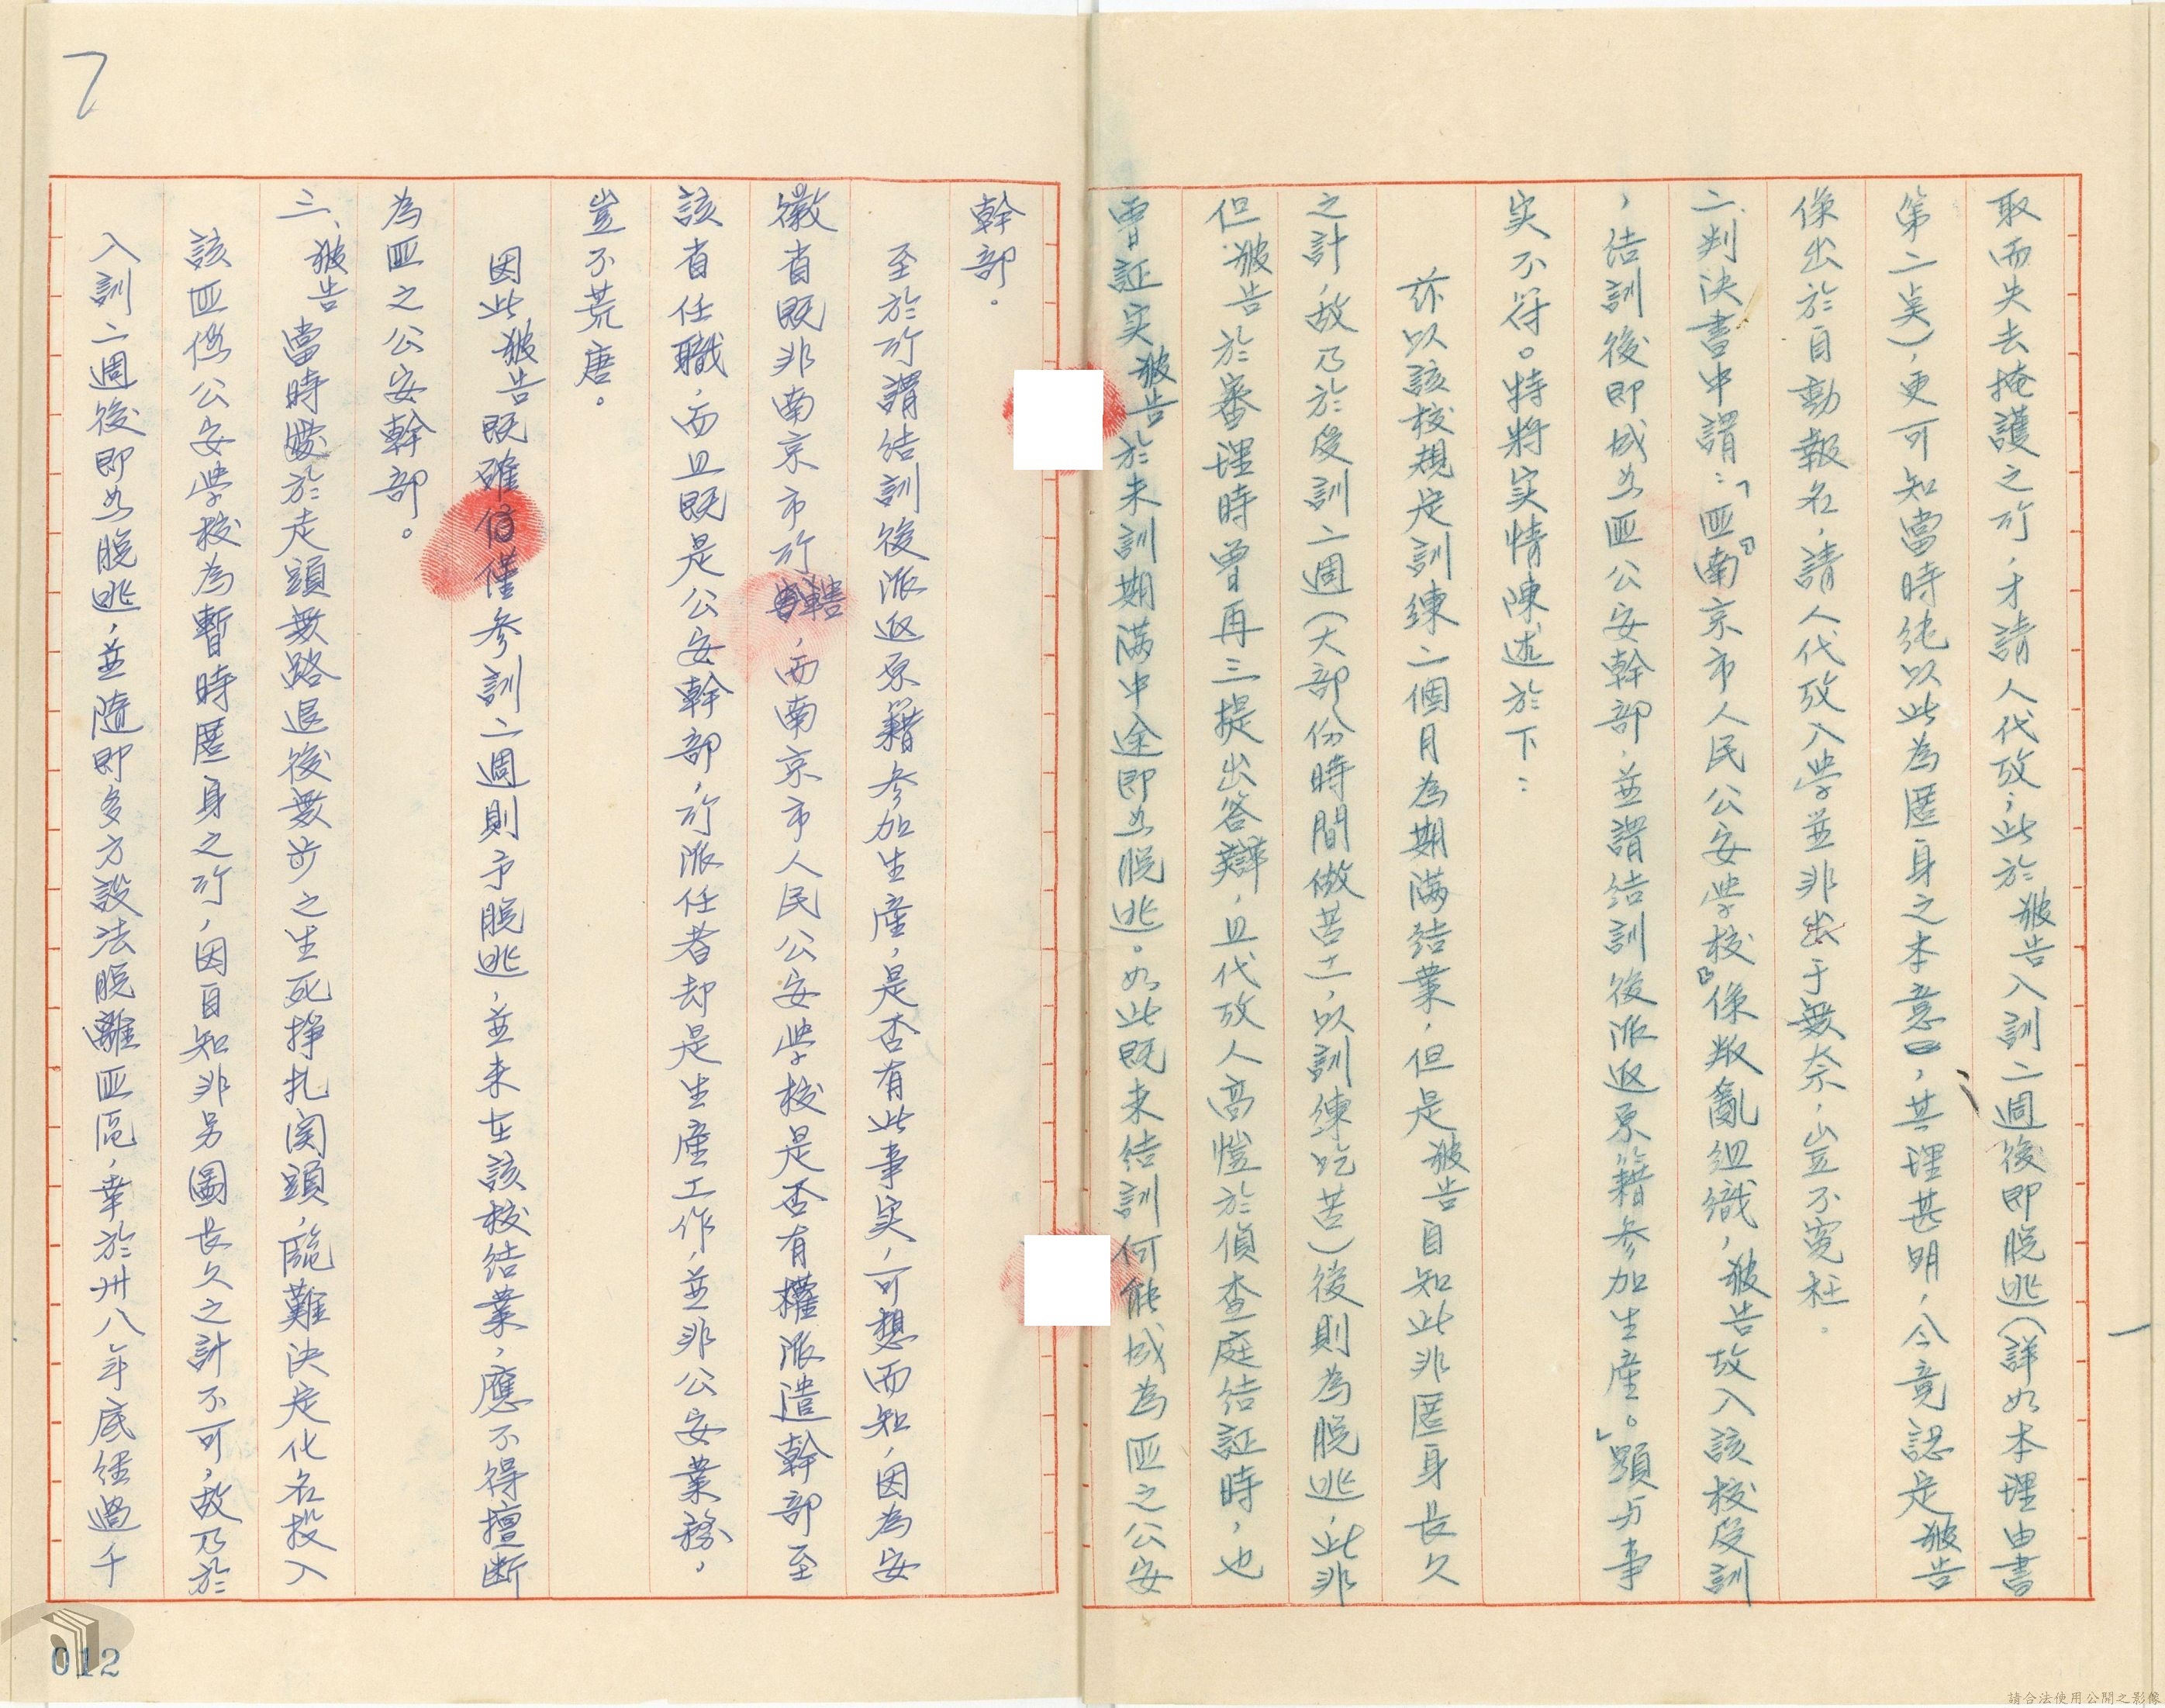 取而失去掩護之所，才請人代攷，此於被告入訓二週後即脫逃（詳如本理由書
第二奌），更可知當時純以此為匿身之本意，其理甚明，今竟認是被告
係出於自動報名，請人代攷入學並非出于無奈，豈不寃枉。
二、判決書中謂：「匪『南京市人民公安學校』係叛亂組織，被告攷入該校受訓
，結訓後即成為匪公安幹部，並謂結訓後派返原籍參加生產。」顯与事
实不符。特將実情陳述於下：
茲以該校規定訓練二個月為期滿結業，但是被告自知此非匿身長久
之計，故乃於受訓二週（大部份時間做苦工，以訓練吃苦）後則為脫逃，此非
但被告於審理時曾再三提出答辯，且代攷人高愷於偵查庭結証時，也
曾証实被告於未訓期满中途即為脫逃。如此既未結訓何能成為匪之公安
幹部。
至於所謂結訓後派返原籍參加生產，是否有此事実，可想而知，因為安
徽省既非南京市所轄，而南京市人民公安學校是否有權派遣幹部至
該省任職，而且既是公安幹部，所派任者却是生產工作，並非公安業務，
豈不荒唐。
因此，被告既確僅參訓二週則予脫逃，並未在該校結業，應不得擅断
為匪之公安幹部。
三、被告當時處於走頭無路退後無步之生死掙扎関頭，臨難決定化名投入
該匪偽公安學校為暫時匿身之所，因自知非另圖長久之計不可，故乃於
入訓二週後即為脫逃，並隨即多方設法脫離匪區，幸於卅八年底經過千
012
請合法使用公開之影像